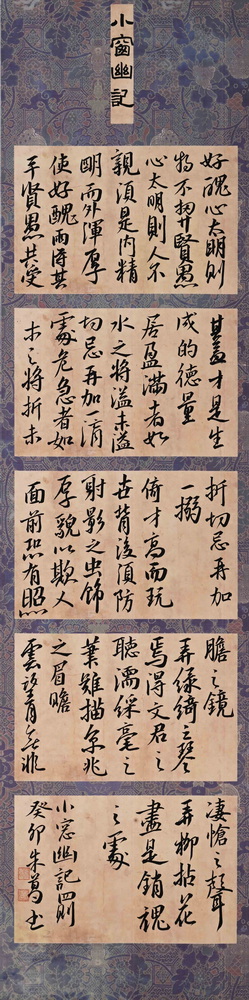 小窗幽記
好醜心太明則
物不契賢愚
心太明則人不
親須是内精
明而外渾厚
使好醜兩得其
平賢愚共受
其益才是生
成的德量
居盈滿者如
水之將溢未溢
切忌再加一滴
處危急者如
木之將折未
折切忌再加
一搦
倚才高而玩
世背後須防
射影之虫飾
厚貌以欺人
面前恐有照
膽之鏡
弄綠綺之琴
焉得文君之
聽濡綵毫之
筆難描京兆
之眉瞻
雲望月無非
凄愴之聲
弄柳拈花
盡是銷魂
之處
小窓幽記四則
癸卯朱葛书